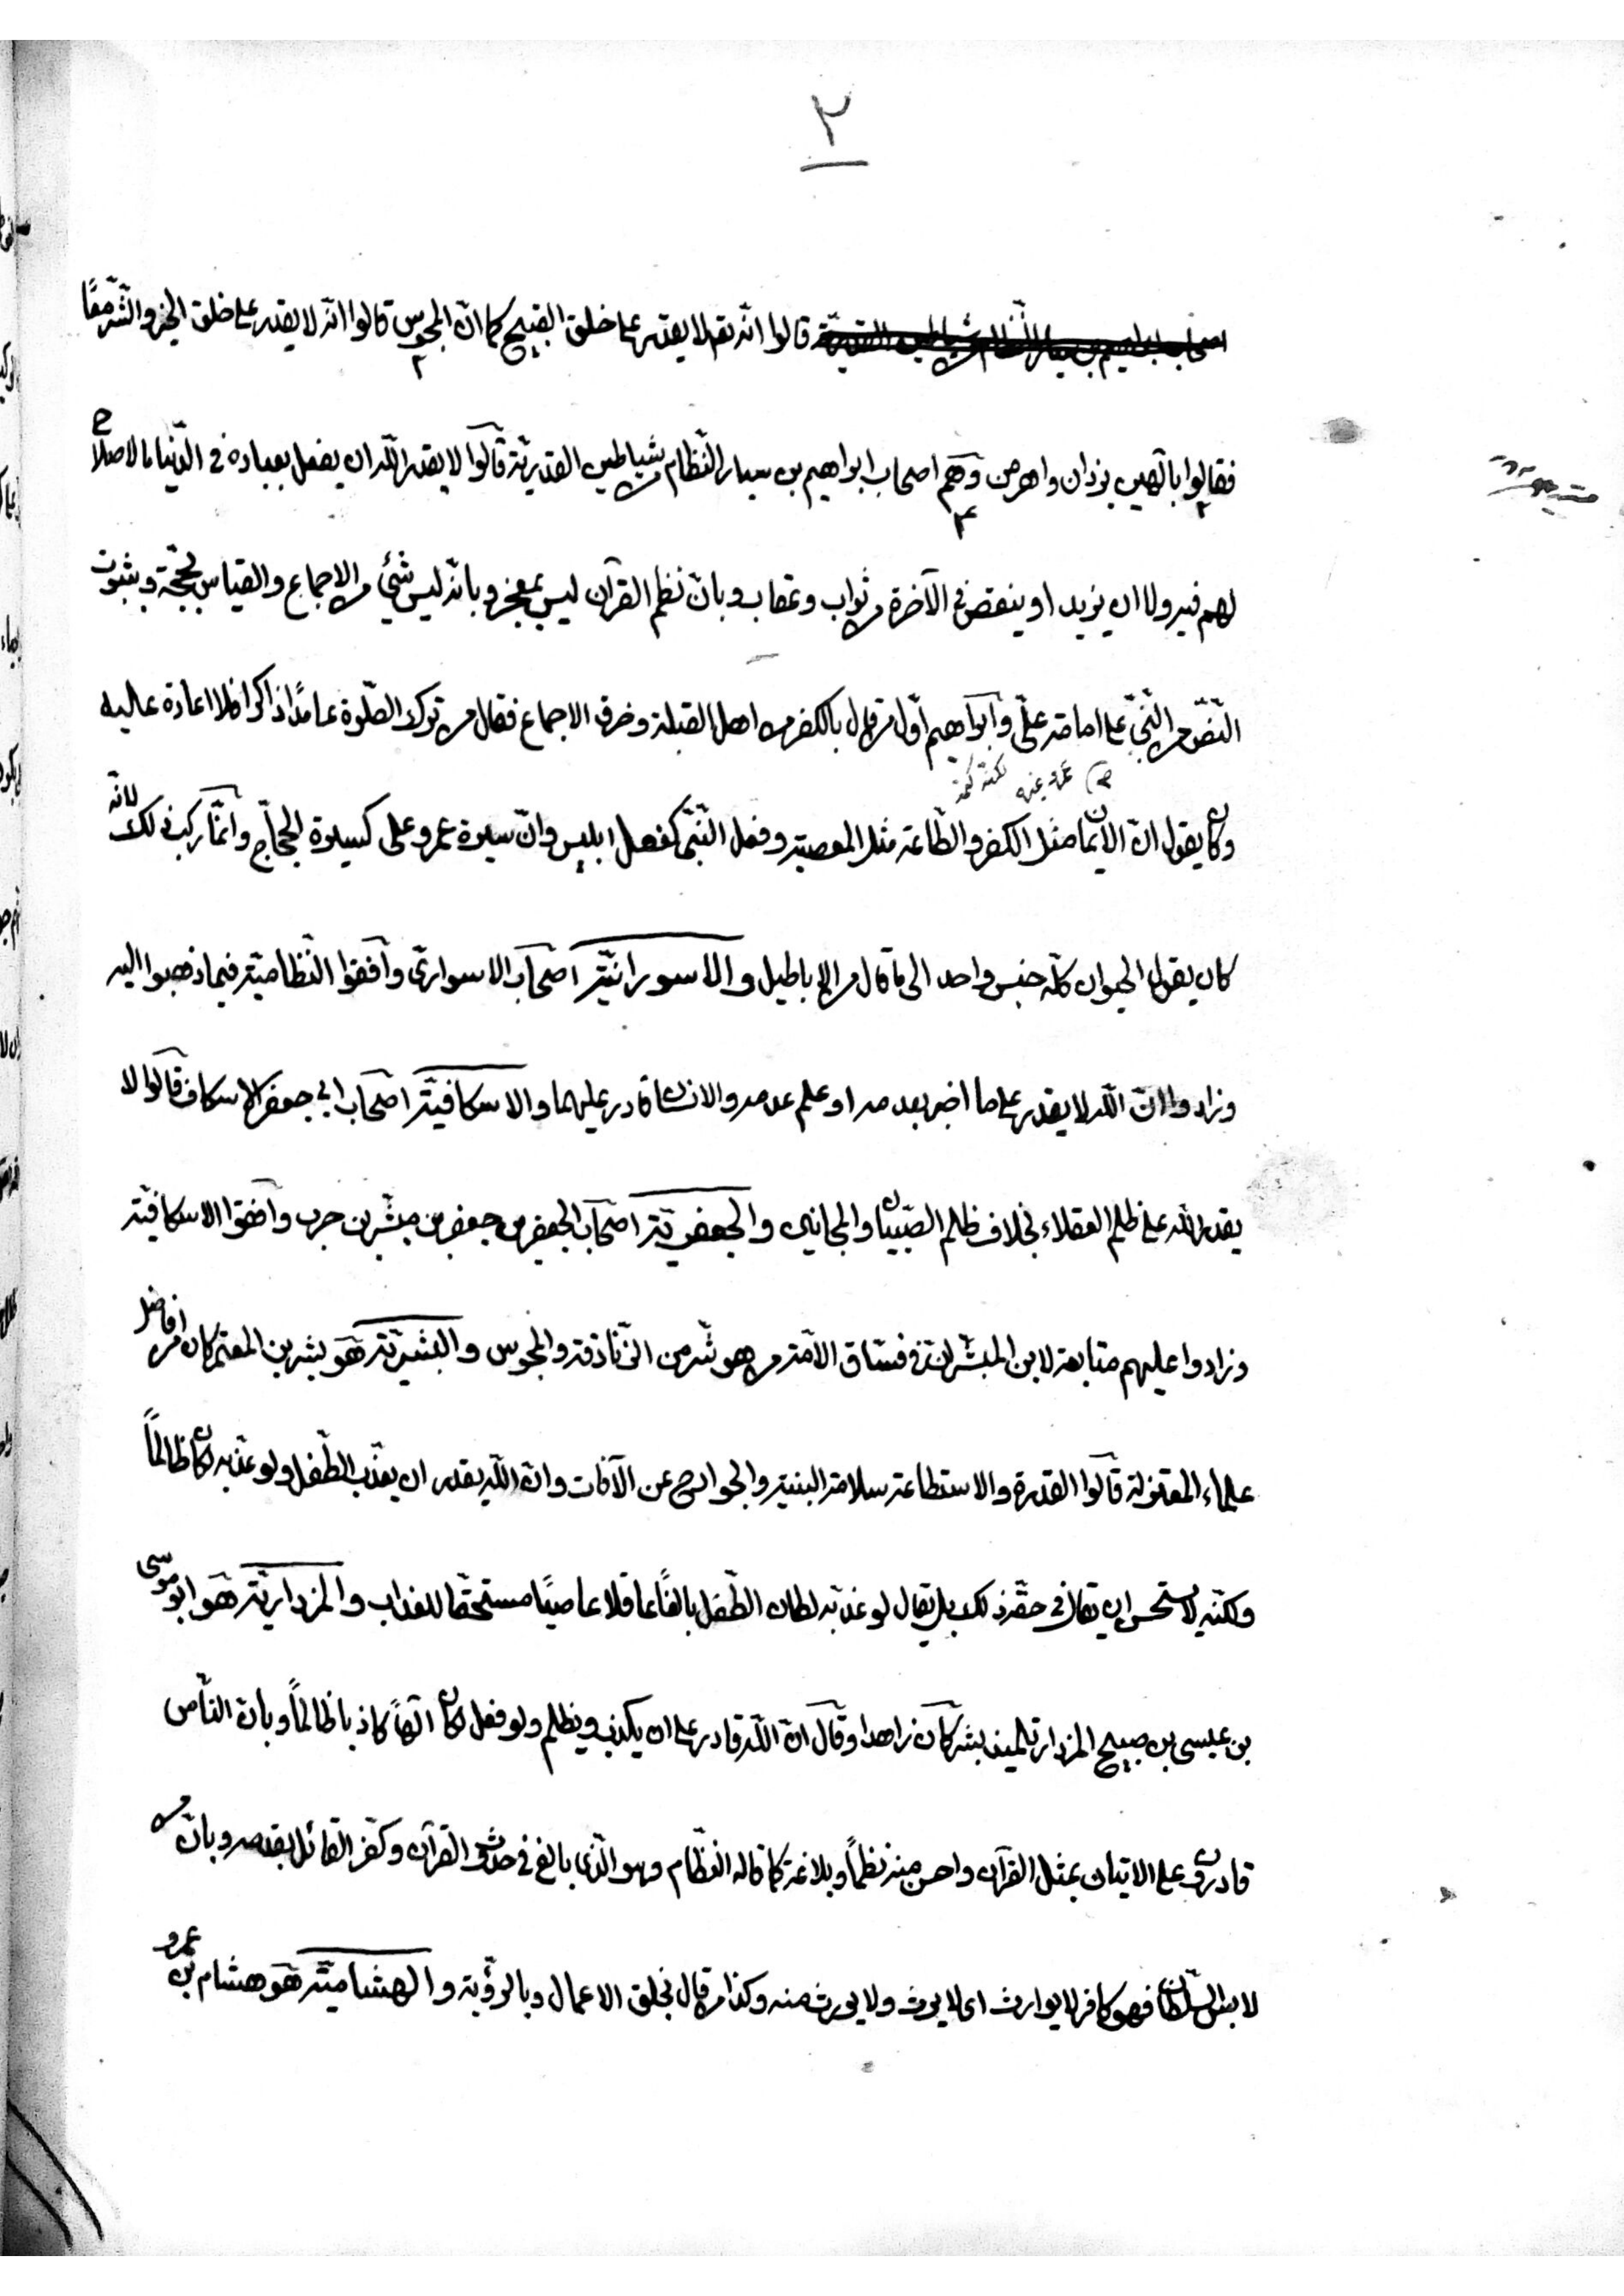 ٢
اصحاب ابراهيم بن سيار النظام من شياطين القدريّة قالوا انّه تعم لا يقدر على خلق القبيح كما انّ المجوس قالوا انّه لا يقدر على خلق الخير والشّر معًا
فقالوا بآلهين يزدان واهرمن وهم اصحاب ابراهيم بن سيار النّظام من شياطين القدريّة قالوا لا يقدر اللّه ان يفعل بعباده فى الدّنيا ما لا صلاح
لهم فيه ولا ان يزيد او ينقص فى الآخرة من ثواب وعقاب وبانّ نظم القرآن ليس بمعجز وبانّه ليس شئ من الاجماع والقياس بحجّة وبثبوت
النّصّ من النّبىّ على امامة علىّ وابراهيم اوّل من قال بالكفر من اهل القبلة وخرق الاجماع فقال من ترك الصّلوة عامدًا ذاكرا فلا اعادة عليه
وكان يقول انّ الايمان مثل الكفر والطّاعة مثل المعصية وفعل النّبىّ كفعل ابليس وانّ سيرة عمر وعلى كسيرة الحجّاج وانّما ركب ذلك لانّه
كان يقول الحيوان كلّه جنس واحد الى ما قال من الاباطيل والاسورانيّة اصحاب الاسوارىّ وافقوا النّظاميّة فيما ذهبوا اليه
وزادوا انّ اللّه لا يقدر على ما اخبر بعدمه او علم عدمه والانسان قادر عليهما والاسكافيّة اصحاب ابى جعفر الاسكاف قالوا لا
يقدر اللّه على ظلم العقلاء بخلاف ظلم الصّبيان والمجانين والجعفريّة اصحاب الجعفرين جعفر بن مبشّر بن حرب وافقوا الاسكافيّة
وزادوا عليهم متابعة لابن المبشّر انّ فى فسّاق الامّة من هو شّر من الزّنادقة والمجوس والبشيريّة هو بشر بن المعتمر كان من افاضل
علماء المعتزلة قالوا القدرة والاستطاعة سلامة البنية والجوارح عن الآفات وانّ اللّه يقدر ان يعذّب الطّفل ولو عذّبه لكان ظالمًا
ولكنّه لا يستحسن ان يقال فى حقّه ذلك بل يقال لو عذّبه لكان الطّفل بالغًا عاقلا عاصيًا مستحقّا للعذاب والمزداريّة هو ابو موسى
بن عيسى بن صبيح المزدار تلميذ بشر كان زاهدا وقال انّ اللّه قادر على ان يكذب ويظلم ولو فعل لكان الهًا كاذبا ظالمًا وبان النّاس
قادرون على الاتيان بمثل القرآن واحسن منه نظمًا وبلاغة كما قاله النظّام وهو الّذى بالغ فى حدوث القرآن وكفّر القائل بقدمه وبانّ من
لابس السّلطان فهو كافر لا يوارث اى لا يرث ولا يورث منه وكذا من قال بخلق الاعمال وبالرؤية والهشاميّة هو هشام بن عمرو